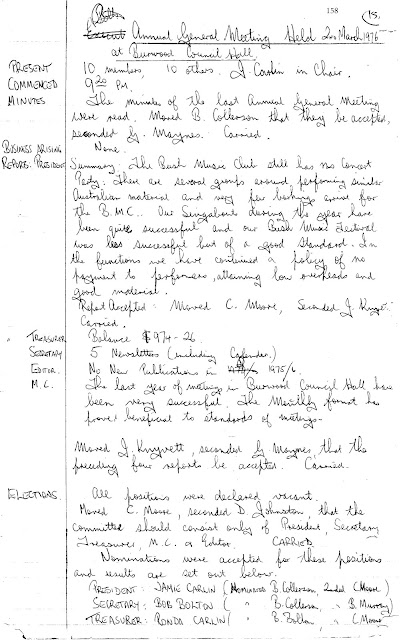 158
15.
Bolton
Annual General Meeting Held 2nd March 1976
at Burwood Council Hall
PRESENT 10 members, 10 others. J. Carlin in Chair.
COMMENCED 9.20 PM.
MINUTES The minutes of the last Annual General Meeting
were read. Moved B. Colleson that they be accepted,
seconded by Maynes. Carried.
BUSINESS ARISING None.
REPORTS: PRESIDENT Summary: The Bush Music Club still has no Concert
Party. There are several groups around performing similar
Australian material and very few bookings arose for
the B.M.C.. Our Singabouts during the year have
been quite successful and our Bush Music Festival
was less successful but of a good standard. In
the functions we have continued a policy of no
payment to performers, attaining low overheads and
good material.
Report Accepted. Moved C. Moore, Seconded J. Knyvett.
Carried.
" TREASURER Balance $974-26
SECRETARY 5 Newsletters (including Calendar.)
EDITOR No New Publications in 1975/6.
M.C. The last year of meetings in Burwood Council Hall have
been very successful. The Monthly format has
proved beneficial to standards of meetings-
Moved J. Knyvett, seconded by Maynes, that the
preceding four reports be accepted. Carried.
ELECTIONS All positions were declared vacant.
Moved C. Moore, seconded D. Johnston, that the
committee should consist only of President, Secretary
Treasurer, M.C. & Editor. CARRIED
Nominations were accepted for these positions
and results are set out below.
PRESIDENT: JAMIE CARLIN (Nominated B. Colleson, 2nded C. Moore)
SECRETARY: BOB BOLTON ( " B. Colleson, " B. Murray)
TREASURER: RONDA CARLIN ( " B. Bolton, " C. Moore)